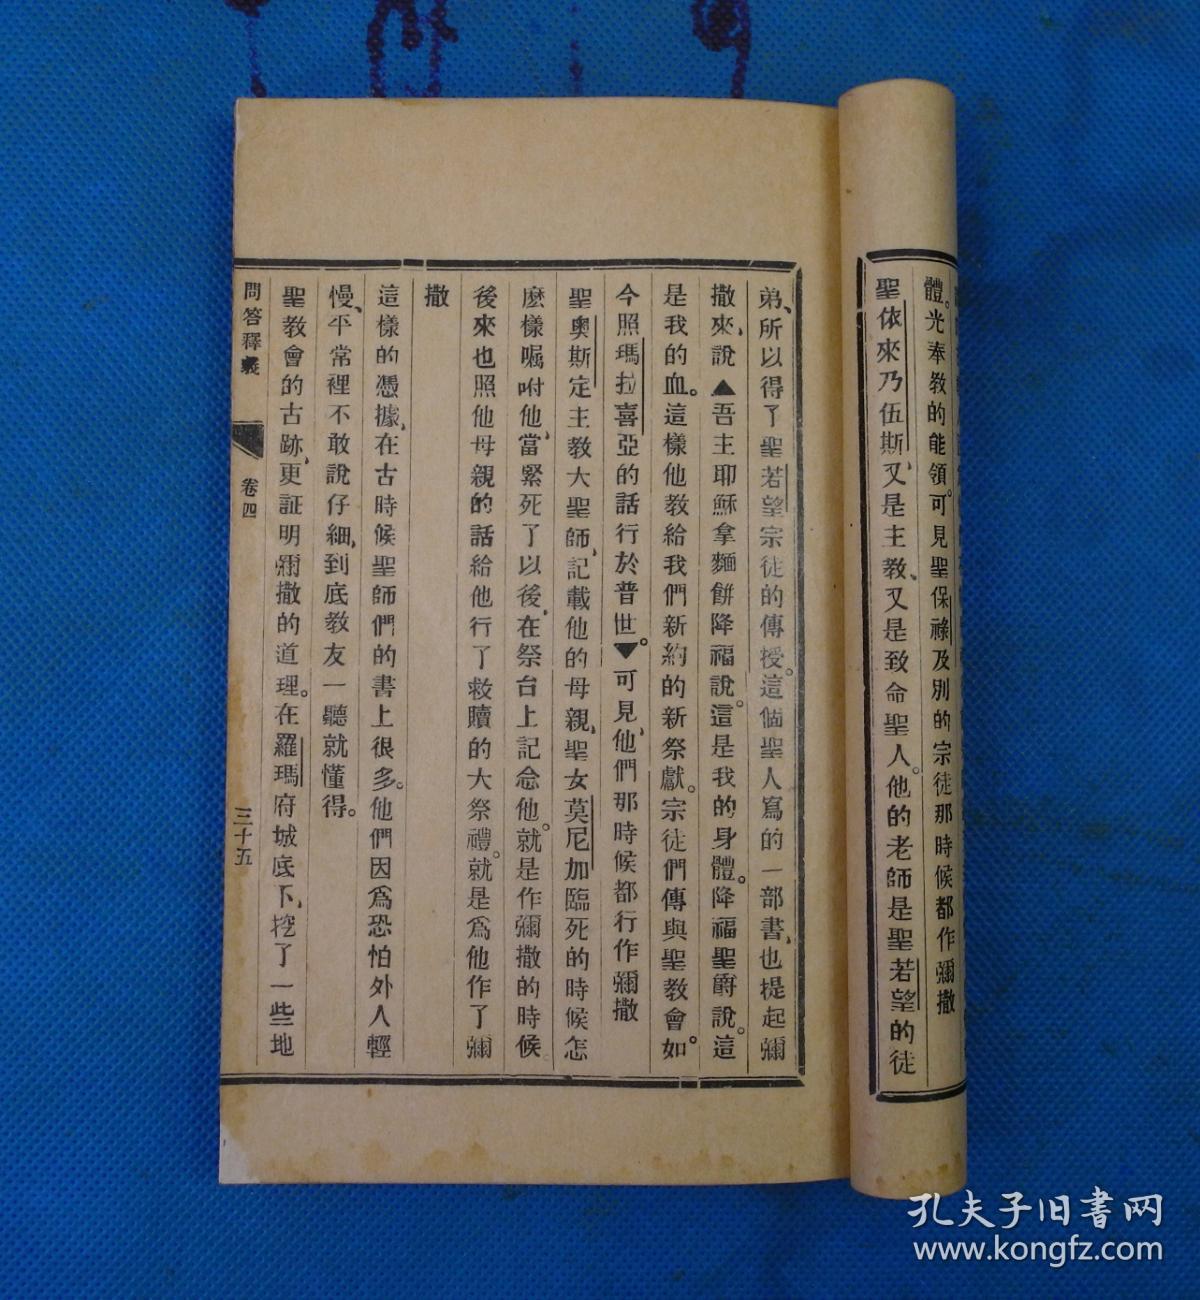 體。光奉教的能領。可見聖保祿及別的宗徒那時候都作彌撒
聖依來乃伍斯、又是主教、又是致命聖人。他的老師是聖若望的徒
弟、所以得了聖若望宗徒的傳授。這個聖人寫的一部書、也提起彌
撒來、說▲吾主耶穌拿麵餅降福說。這是我的身體。降福聖爵說。這
是我的血。這樣他教給我們新約的新祭獻。宗徒們傳與聖教會。如
今照瑪拉喜亞的話行於普世。▼可見、他們那時候都行作彌撒
聖奧斯定主教大聖師、記載他的母親、聖女莫尼加臨死的時候怎
麽樣囑咐他、當緊死了以後、在祭台上記念他。就是作彌撒的時候。
後來也照他母親的話給他行了救贖的大祭禮。就是爲他作了彌
撒
這樣的憑據、在古時候聖師們的書上很多。他們因爲恐怕外人輕
慢、平常裡不敢說仔細、到底教友一聽就懂得。
聖教會的古跡、更証明彌撒的道理。在羅瑪府城底下、挖了一些地
問答釋義 卷四 三十五
孔夫子旧书网
www.kongfz.com